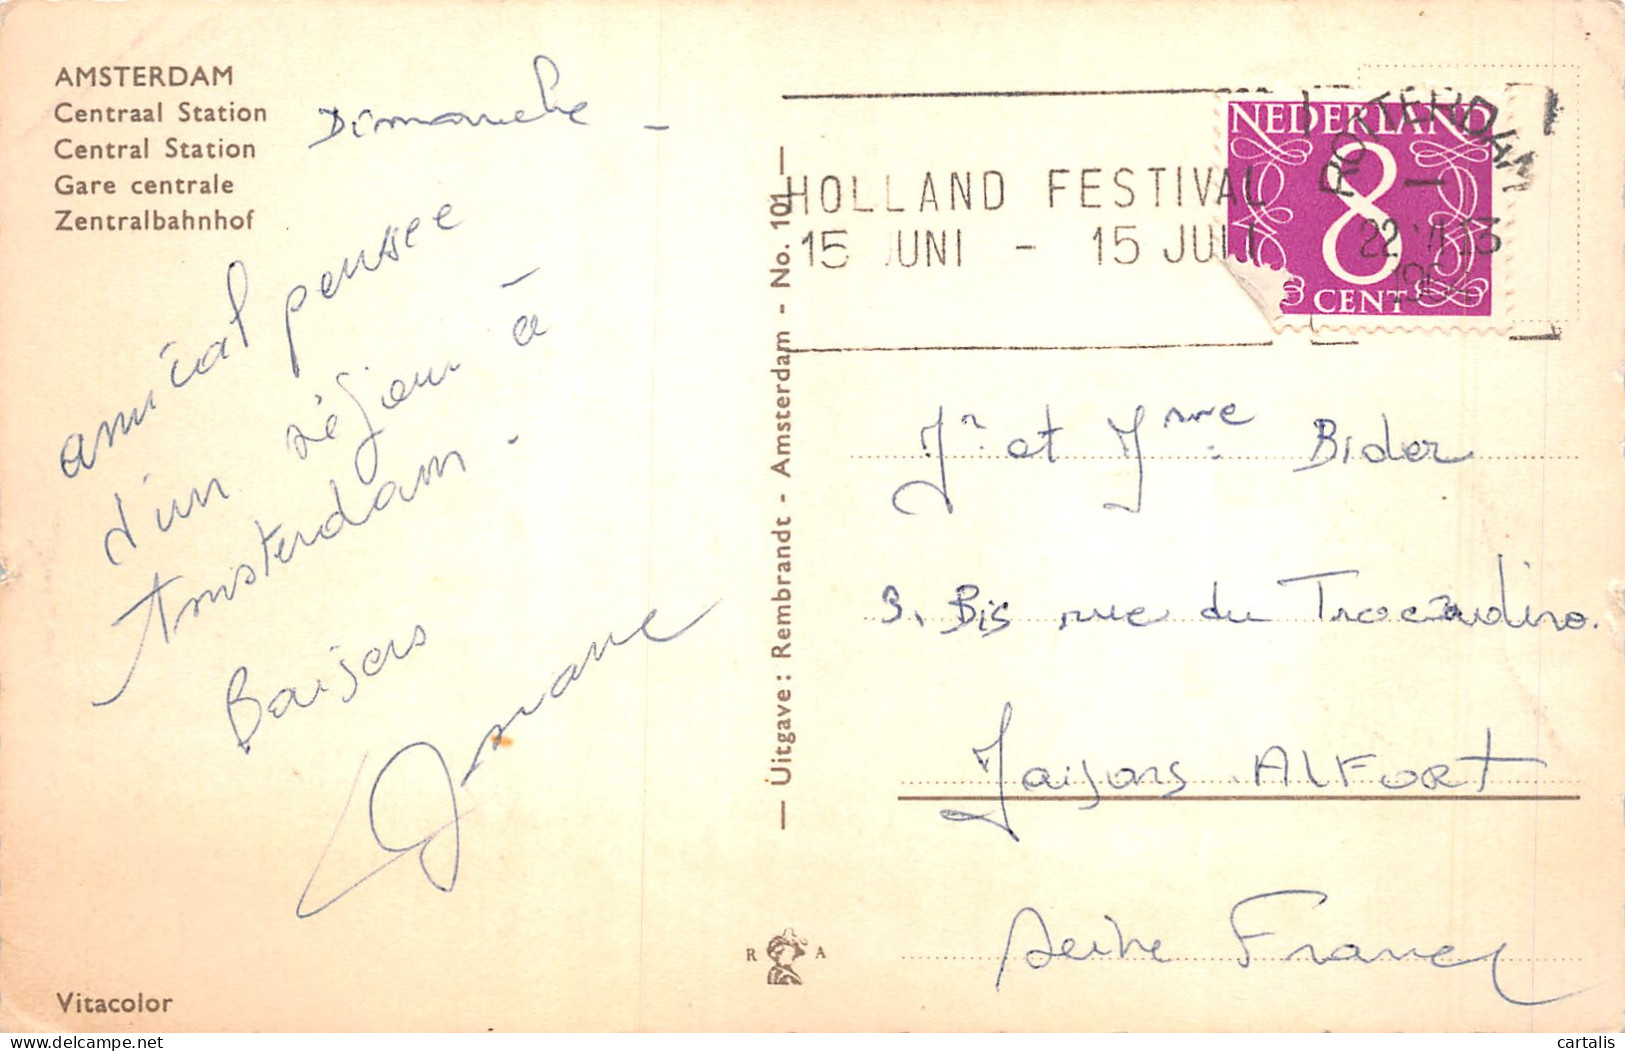 AMSTERDAM
Centraal Station
Central Station
Gare centrale
Zentralbahnhof
Dimanche -
amical pensee
d'un séjour à
Amsterdam.
Baisers
Vitacolor
— Uitgave: Rembrandt - Amsterdam - No. 101 —
R A
HOLLAND FESTIVAL
15 JUNI - 15 JULI
NEDERLAND
8
CENT
ROTTERDAM
22.VI.13
1964
Mr et Mme Bider
3. Bis rue du Trocadino.
Maisons ALFort
seine France
cartalis
delcampe.net